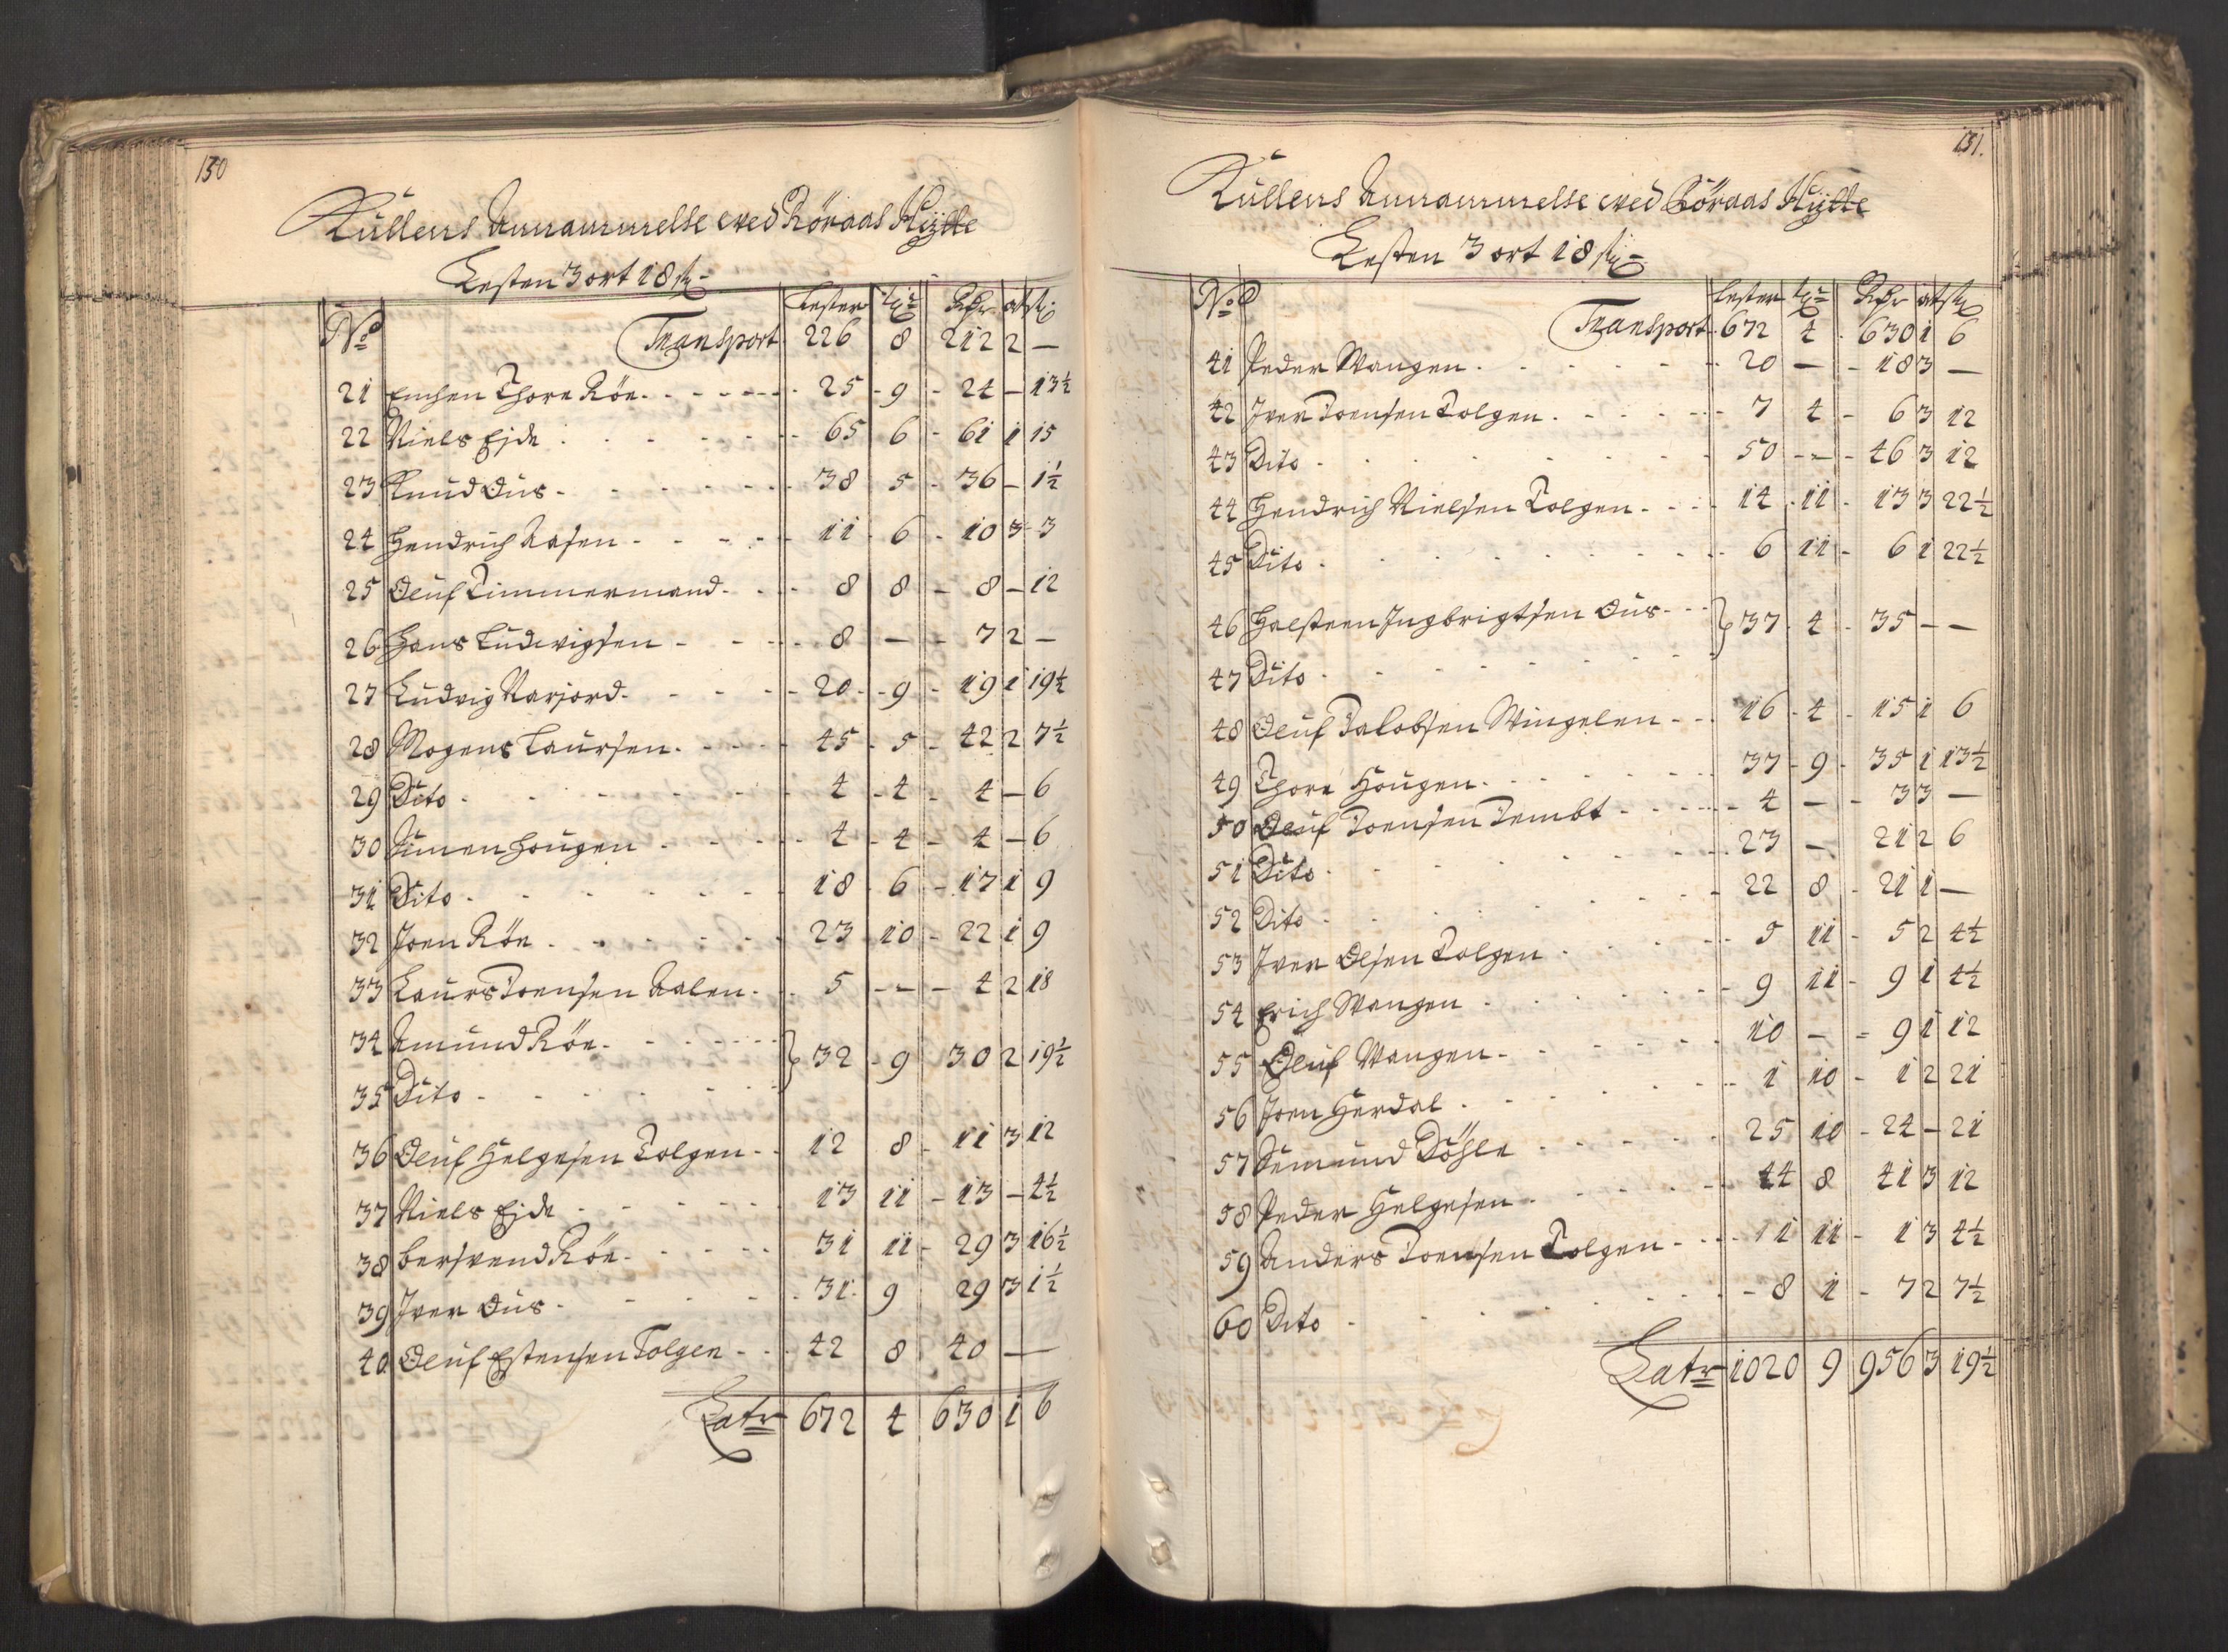 130
Kullens Annammelse wed Röraas Hÿtte
Lesten 3 ort 18 sk
No Lester Tr Rdr ort sk
Transport 226 8 212 2 —
21 Enchen Thore Röe 25 9 24 — 13½
22 Niels Eide 65 6 61 1 15
23 Knud Ous 38 5 36 — 1½
24 Hendrich Aasen 11 6 10 3 3
25 Oluf Timmermand 8 8 8 — 12
26 Hans Ludwigsen 8 — 7 2 —
27 Ludvig Narjord 20 9 19 1 19½
28 Mogens Laursen 45 5 42 2 7½
29 Dito 4 4 4 — 6
30 Simen Hougen 4 4 4 — 6
31 Dito 18 6 17 1 9
32 Joen Röe 23 10 22 1 9
33 Laurs Joensen Aalen 5 — 4 2 18
34 Amund Röe } 32 9 30 2 19½
35 Dito
36 Oluf Helgesen Tolgen 12 8 11 3 12
37 Niels Eide 13 11 13 — 4½
38 Bersvend Röe 31 11 29 3 16½
39 Iver Ous 31 9 29 3 1½
40 Oluf Estensen Tolgen 42 8 40 —
Latr 672 4 630 1 6
131.
Kullens Annammelse wed Röraas Hÿtte
Lesten 3 ort 18 sk
No Lester Tr Rdr ort sk
Transport 672 4 630 1 6
41 Peder Wangen 20 — 18 3 —
42 Iver Joensen Tolgen 7 4 6 3 12
43 Dito 50 — 46 3 12
44 Hendrich Nielsen Tolgen 14 11 13 3 22½
45 Dito 6 11 6 1 22½
46 Halsteen Ingbrigtsen Ous } 37 4 35 — —
47 Dito
48 Oluf Jakobsen Wingelen 16 4 15 1 6
49 Thore Hougen 37 9 35 1 13½
50 Oluf Joensen Tembt 4 — 3 3 —
51 Dito 23 — 21 2 6
52 Dito 22 8 21 1 —
53 Iver Olsen Tolgen 5 11 5 2 4½
54 Erich Wangen 9 11 9 1 4½
55 Oluf Wangen 10 — 9 1 12
56 Joen Hurdal 1 10 1 2 21
57 Semund Döhle 25 10 24 — 21
58 Peder Helgesen 44 8 41 3 12
59 Anders Joensen Tolgen 1 11 1 3 4½
60 Dito 8 1 7 2 7½
Latr 1020 9 956 3 19½